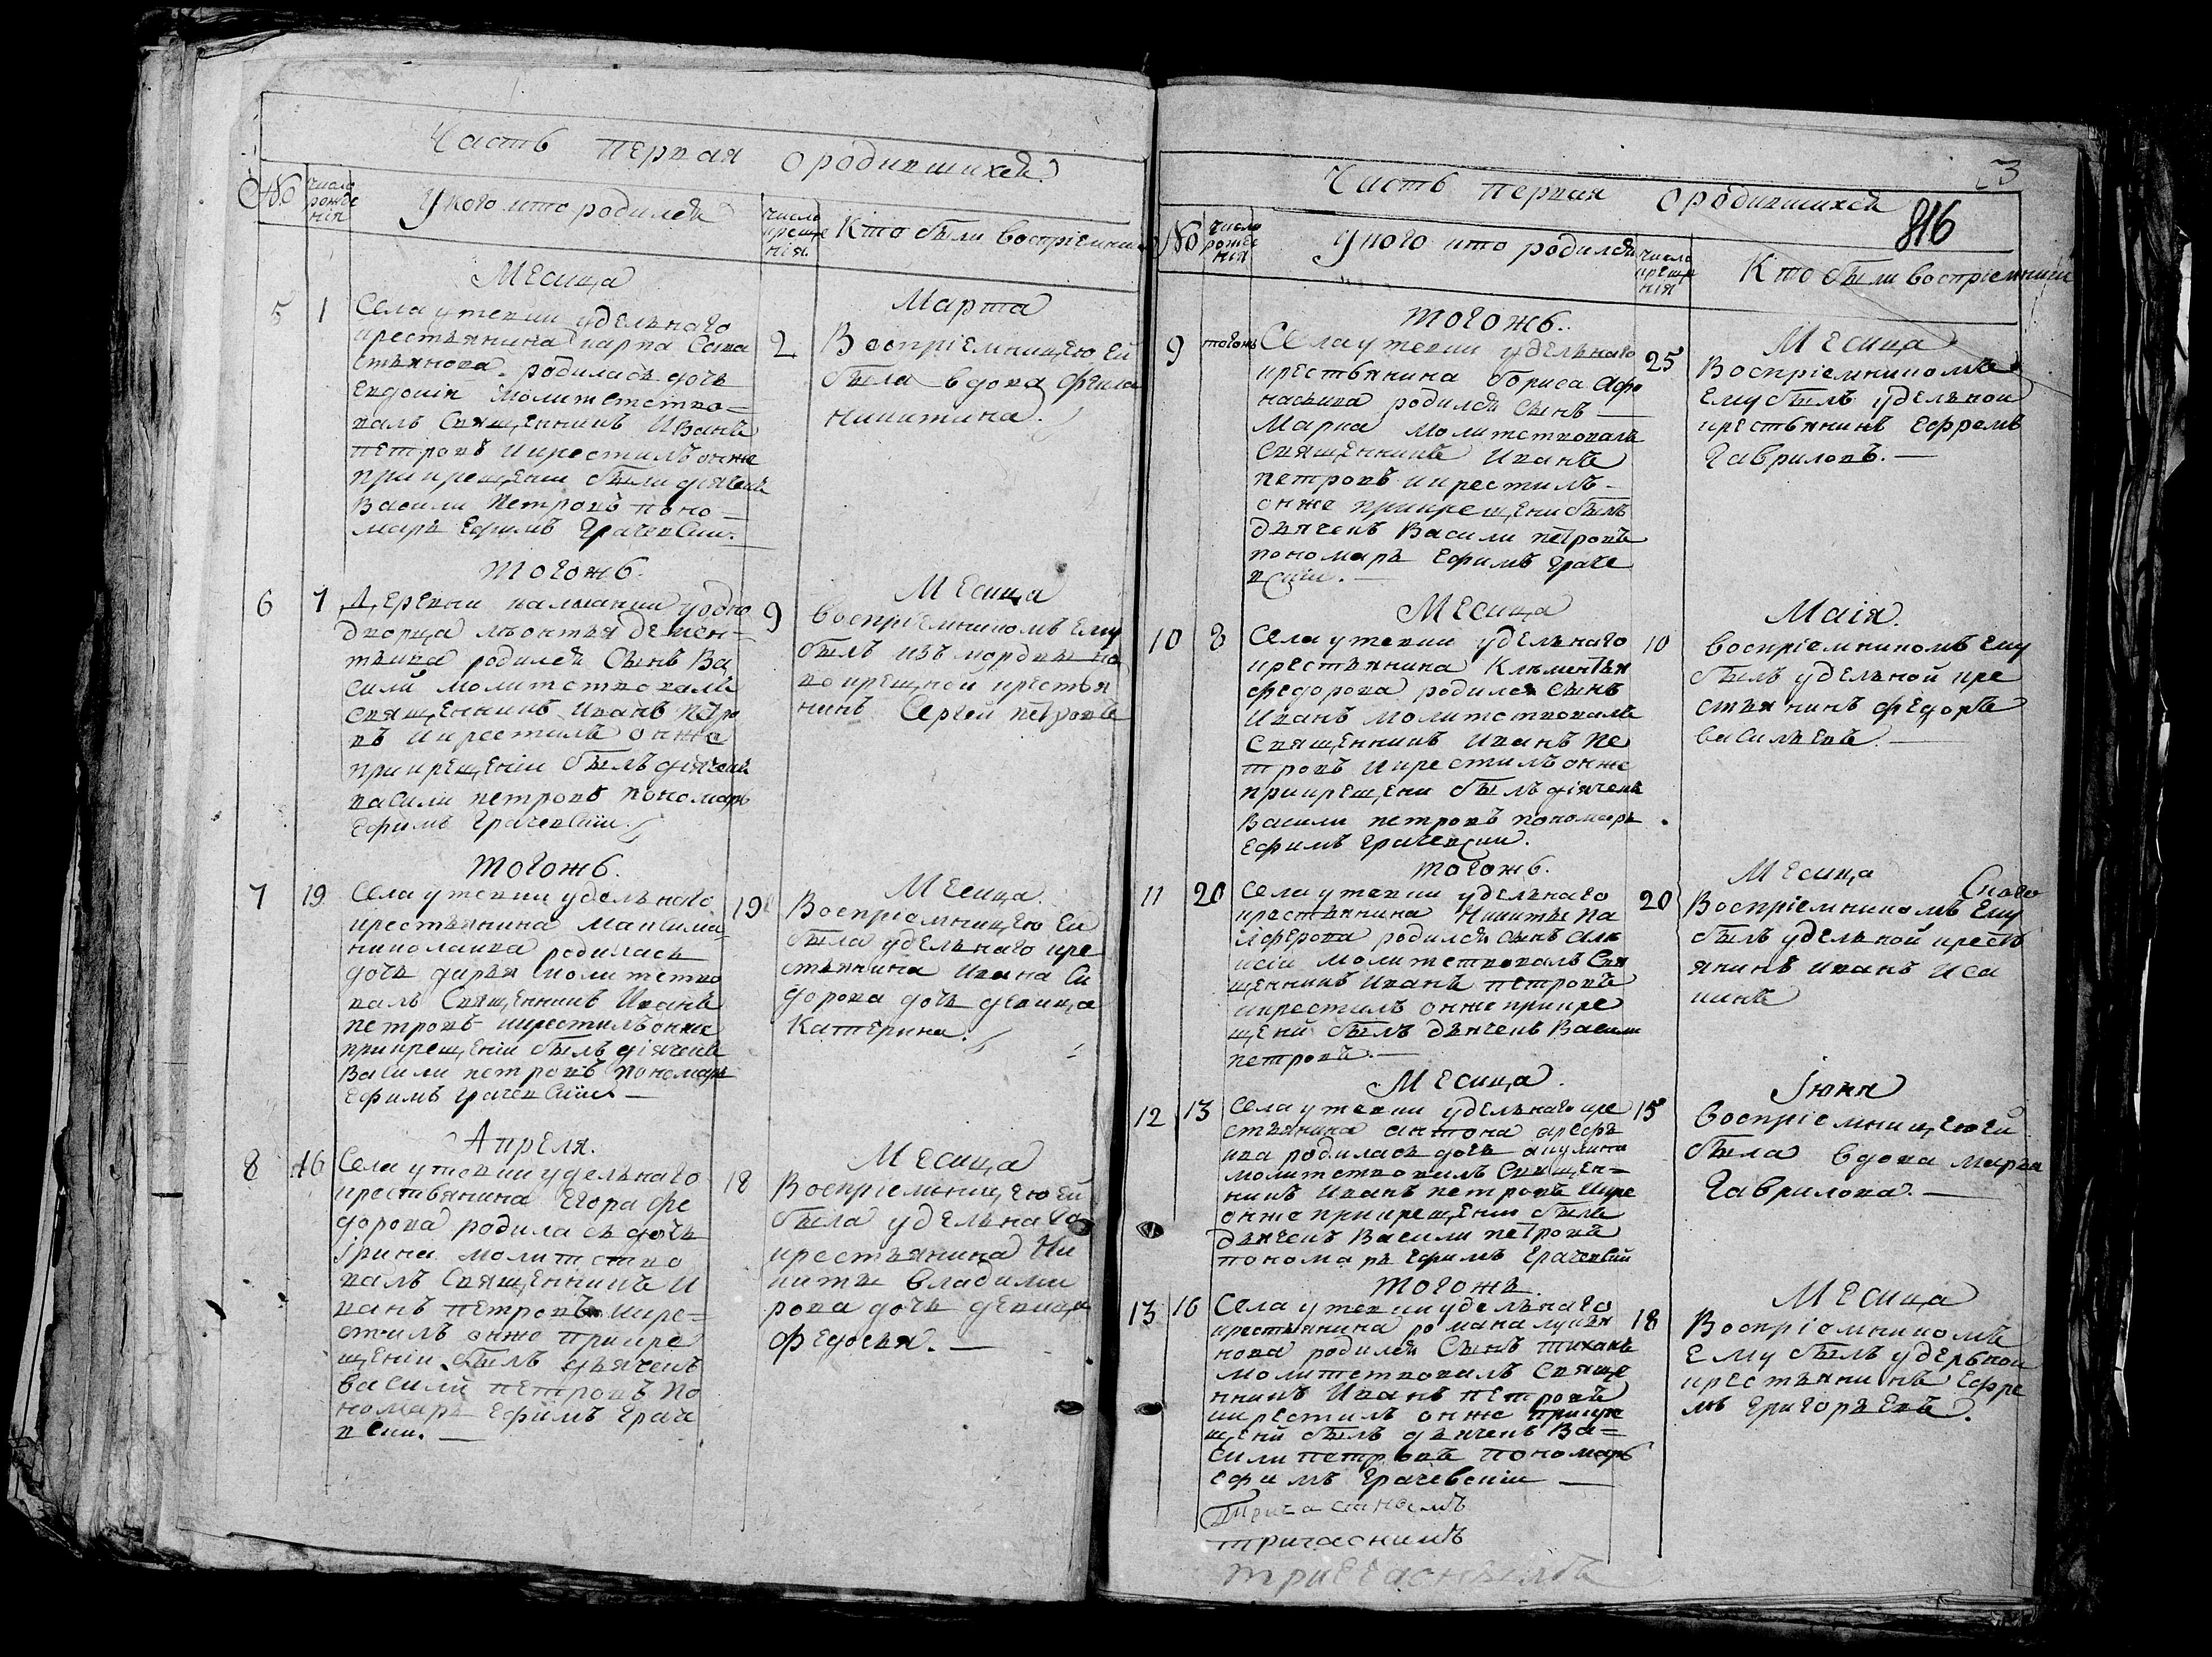 Часть первая о родившихся.
№
число рожде нія
У кого кто родился
числа креще нія.
Кто были восприемники
Месяца
Марта
5
1
Села утевки удельнаго
крестьянина карпа Сева
стьянова родилась дочь
евдокія молитствo=
валъ Священникъ Иванъ
петровъ и крестилъ онже
при крещеніи были дьячекъ
Васили Петровъ поно=
марь Ефимъ Грачевски.
2
Восприемницею ей
была вдова
никитина.
тогожъ.
Месяца
6
7
Деревни у одно
дворца леонтья демен=
тьева родился Сынъ Ва
сили молитствовалъ
священникъ Иванъ Петро
въ и крестилъ онже
при крещеніи былъ дьячекъ
васили петровъ пономарь
Ефимъ Грачевски.
9
Воспріемникомъ ему
былъ изъ мордвы но
вокрещной крестья
нинъ Сергей петровъ
тогожъ.
Месяца.
7
19
Села утевки удельнаго
крестьянина Максима
николаива родилась
дочь дарья молитство
валъ Священникъ Иванъ
петровъ и крестилъ онже
при крещеніи былъ діячекъ
Васили петровъ пономарь
Ефимъ Грачевски —
19
Воспріемницею ей
была удельнаго кре
стьянина Ивана Си
дорова дочь девица
Катерина.
Апреля.
Месяца
8
16
Села утевки удельнаго
крестьянина Егора Фе
дорова родилась дочь
ірина молитство
валъ Священникъ И
ванъ петровъ и кре=
стилъ онже при кре
щеніи былъ дьячекъ
васили петровъ по
номарь Ефимъ Граче
вски. —
18
Воспріемницею ей
была удельнаго
крестьянина Ни
киты Владими
рова дочь девица
федосья. —
23
816
Часть первая о родившихся
№
число рожде нія
У кого кто родился
число креще нія
Кто были воспріемники
тогожъ.
Месяца
9
тогожъ
Села утевки удельнаго
крестьянина бориса Афо
насьива родился Сынъ —
Марка молитствовалъ
Священникъ Иванъ
петровъ и крестилъ —
онже при крещени былъ
дьячекъ Васили петровъ
пономарь Ефимъ Граче
вски. —
25
Воспріемникомъ
ему былъ удельной
крестьянинъ Ефремъ
Гавриловъ. —
Месяца
Маія.
10
8
Села утевки удельнаго
крестьянина Клементья
федорова родился Сынъ
Иванъ молитствовалъ
Священникъ Иванъ Пе
тровъ и крестилъ онже
при крещени былъ діячекъ
Васили петровъ пономарь
Ефимъ Грачевски.
10
Воспріемникомъ ему
былъ удельной кре
стьянинъ федоръ
васильевъ. —
тогожъ.
Месяца
11
20
Села утевки удельнаго
крестьянина Никиты Па
родился сынъ Але
ксіи молитствовалъ Свя
щенникъ Иванъ петровъ
и крестилъ онже при кре
щени былъ дьячекъ Васили
петровъ. —
20
Воспріемникомъ ему
былъ удельной кресть
янинъ иванъ Иса
кинъ
Месяца.
Іюня
12
13
Села утевки удельнаго кре
стьянина антона арефь
ива родилась дочь акулина
молитствовалъ Священ=
никъ Иванъ петровъ и кре
онже при крещени былъ
дьячекъ Васили петровъ
пономарь Ефимъ Грачевски
15
Воспріемницею ей
была вдова марва
Гаврилова. —
тогожъ.
Месяца
13
16
Села утевки удельнаго
крестьянина романа лукья
нова родился Сынъ тиханъ
молитствовалъ Свяще
нникъ Иванъ петровъ
и крестилъ онже при кре
щени былъ дьячекъ Ва=
сили петровъ пономарь
Ефимъ Грачевскіи —
18
Воспріемникомъ
ему былъ удельной
крестьянинъ Ефре
мъ Григорьевъ.